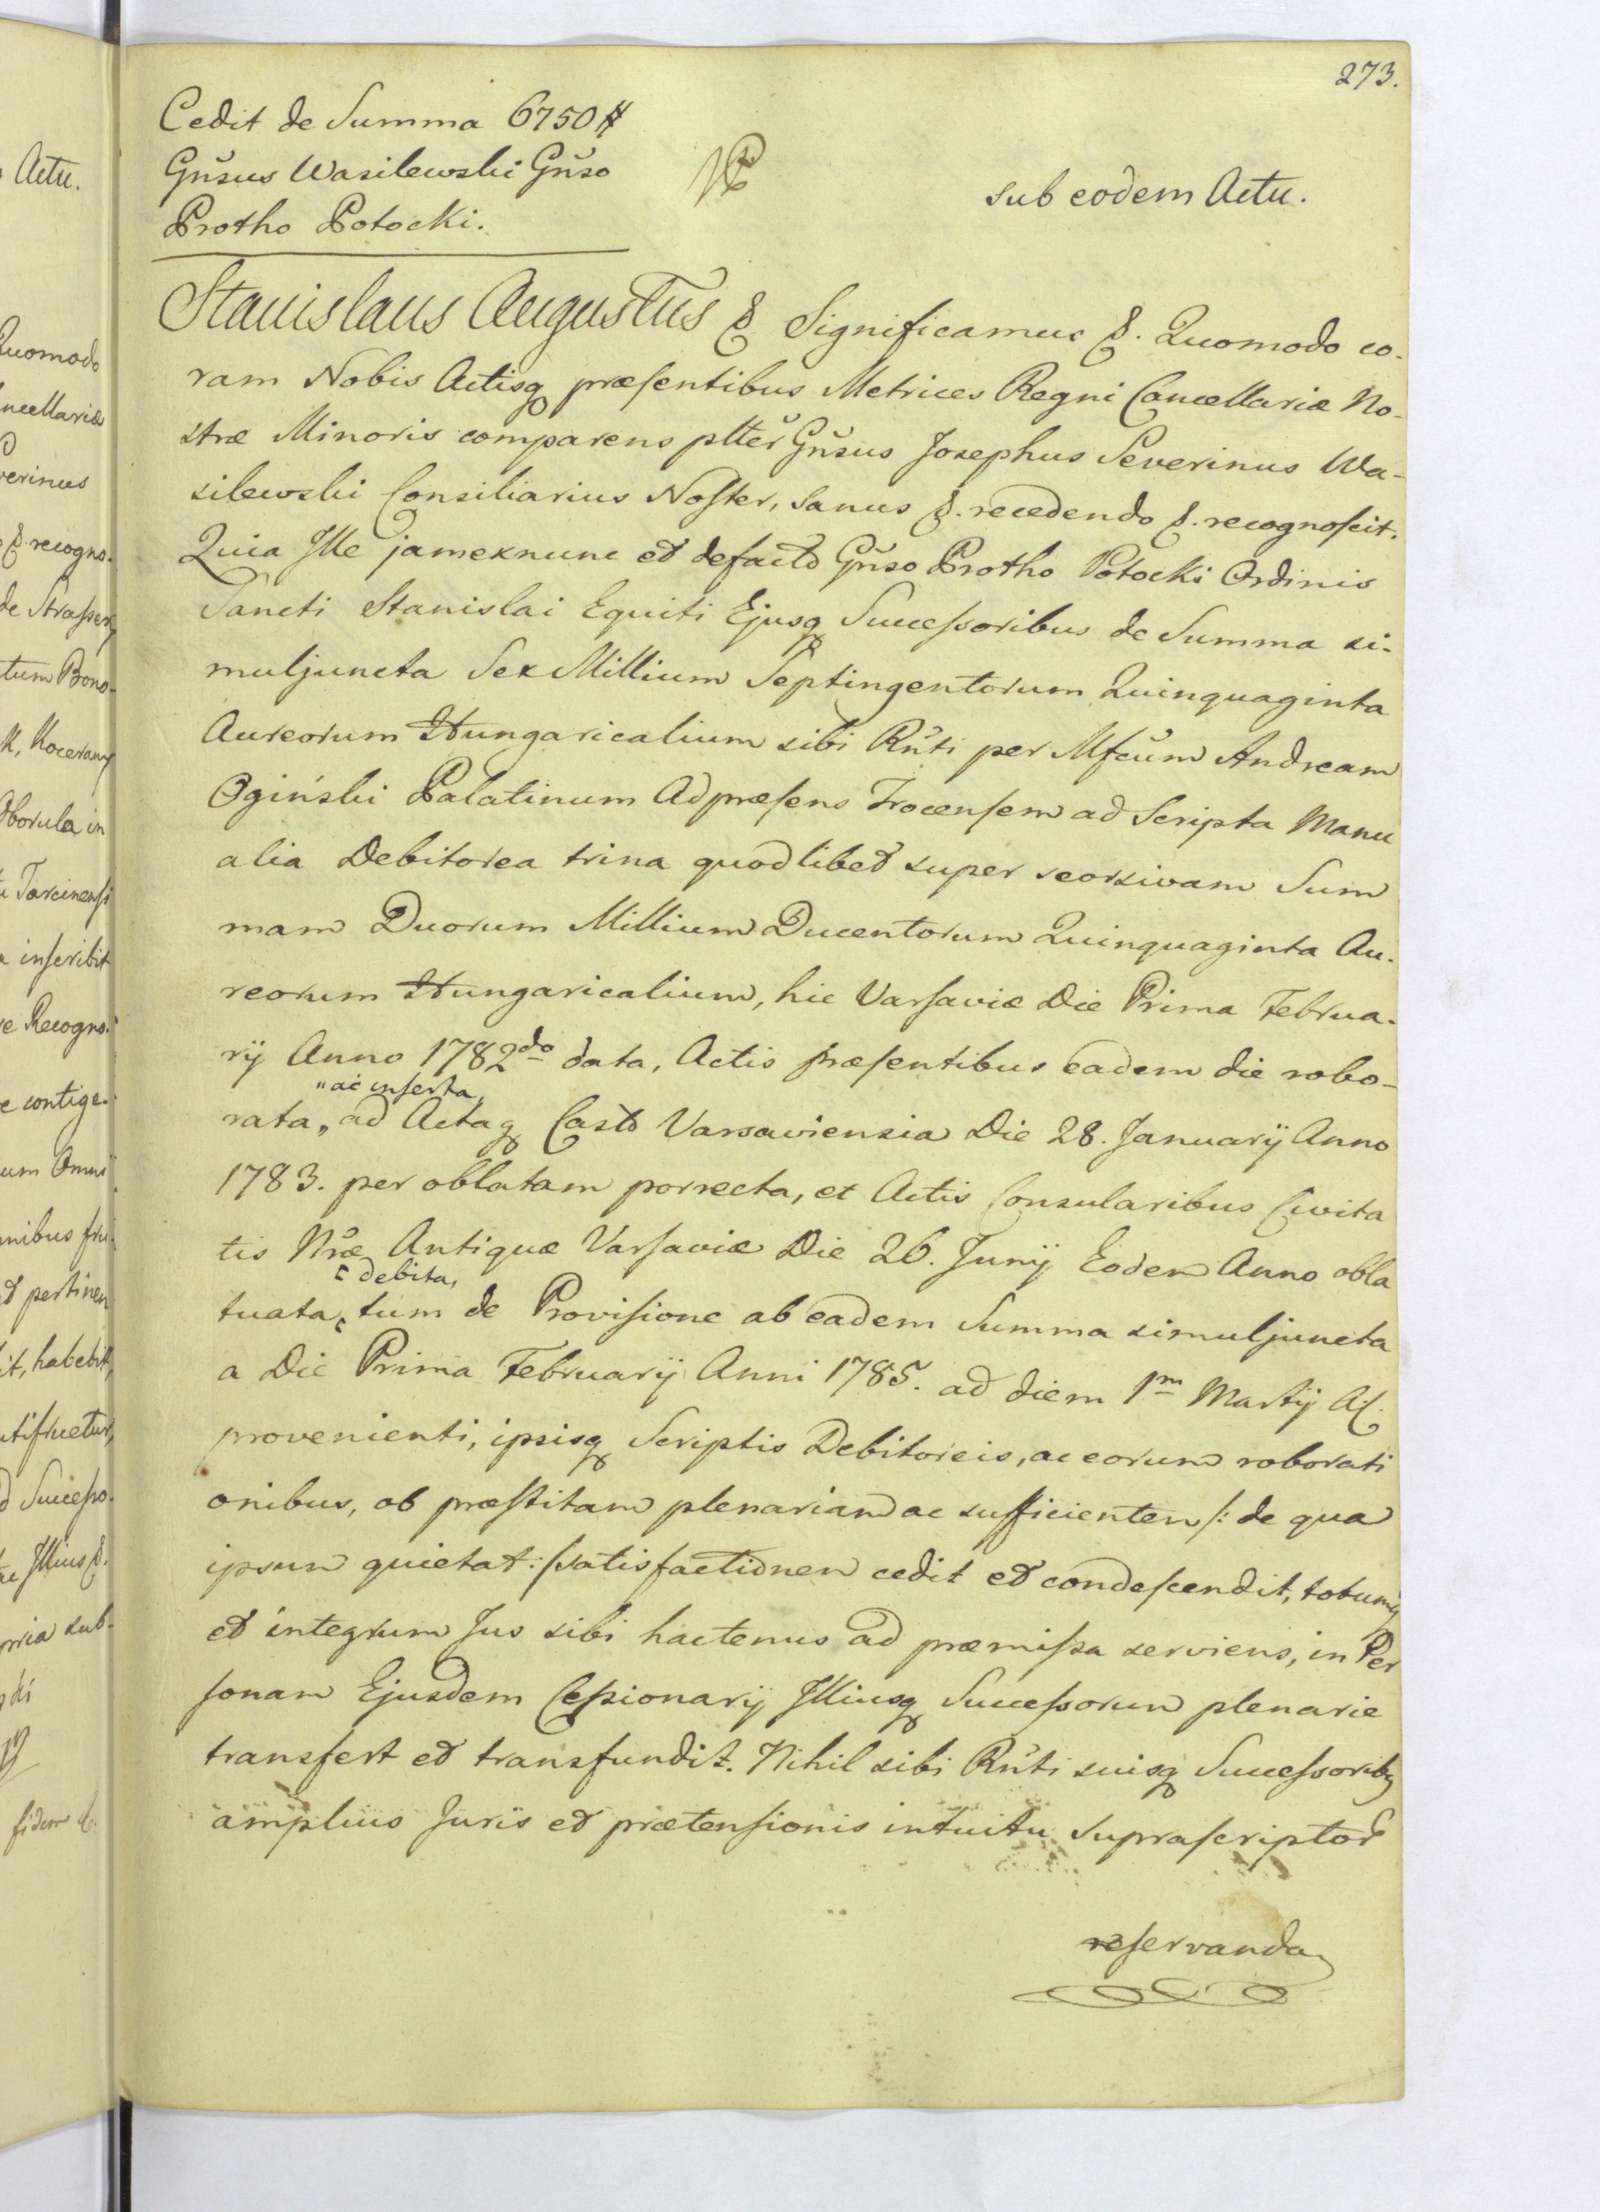 273.
Cedit de Summa 6750 #
Gn̄sus Wasilewski Gn̄so
Protho Potocki.
sub eodem Actu.
Stanislaus Augustus &. Significamus &. Quomodo co-
ram Nobis Actisq præsentibus Metrices Regni Cancellariæ No-
stræ Minoris comparens pltěr Gn̄sus Josephus Severinus Wa-
silewski Consiliarius Noster, sanus &. recedendo &. recognoscit.
Quia Ille jamexnunc et defacto Gn̄so Protho Potocki Ordinis
Sancti Stanislai Equiti Ejusq Successoribus de Summa si-
muljuncta Sex Millium Septingentorum Quinquaginta
Aureorum Hungaricalium sibi Rn̄ti per Mfcūm Andream
Ogiński Palatinum Adpræsens Trocensem ad Scripta Manu
alia Debitorea trina quodlibet super seorsivam Sum
mam Duorum Millium Ducentorum Quinquaginta Au-
reorum Hungaricalium, hic Varsaviæ Die Prima Februa-
rij Anno 1782do data, Actis præsentibus eadem die robo-
" ac inserta,
rata „ ad Actaq Casto Varsaviensia Die 28. Januarij Anno
1783. per oblatam porrecta, et Actis Consularibus Civita
tis Nr̄æ Antiquæ Varsaviæ Die 26. Junij Eodem Anno obla
debita,
tuata, tum de Provisione ab eadem Summa simuljuncta
a Die Prima Februarij Anni 1785. ad diem 1m Martij A(.
provenienti, ipsisq Scriptis Debitoreis, ac eorum roborati
onibus, ob præstitam plenariam ac sufficientem /: de qua
ipsum quietat :/ satisfactionem cedit et condescendit, totumq
et integrum Jus sibi hactenus ad præmissa serviens, in Per
sonam Ejusdem Cessionarij Illiusq Successorum plenarie
transfert et transfundit. Nihil sibi Rn̄ti suisq Successoribq
amplius Juris et prætensionis intuitu suprascriptor
reservanda